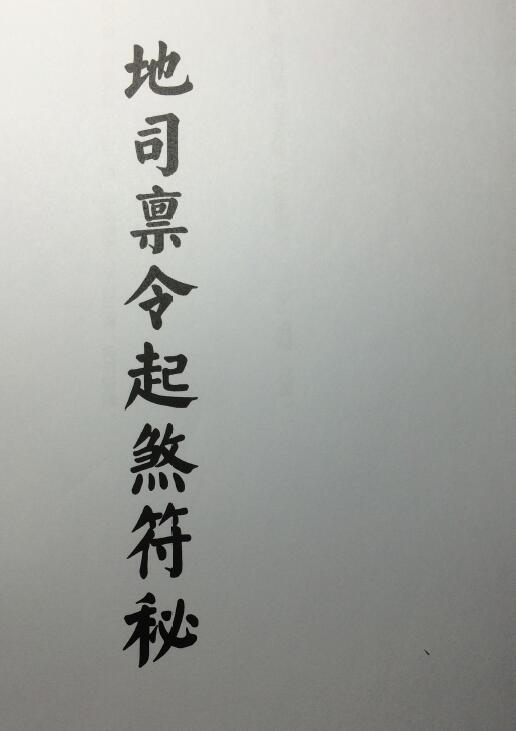 地司禀令起煞符秘